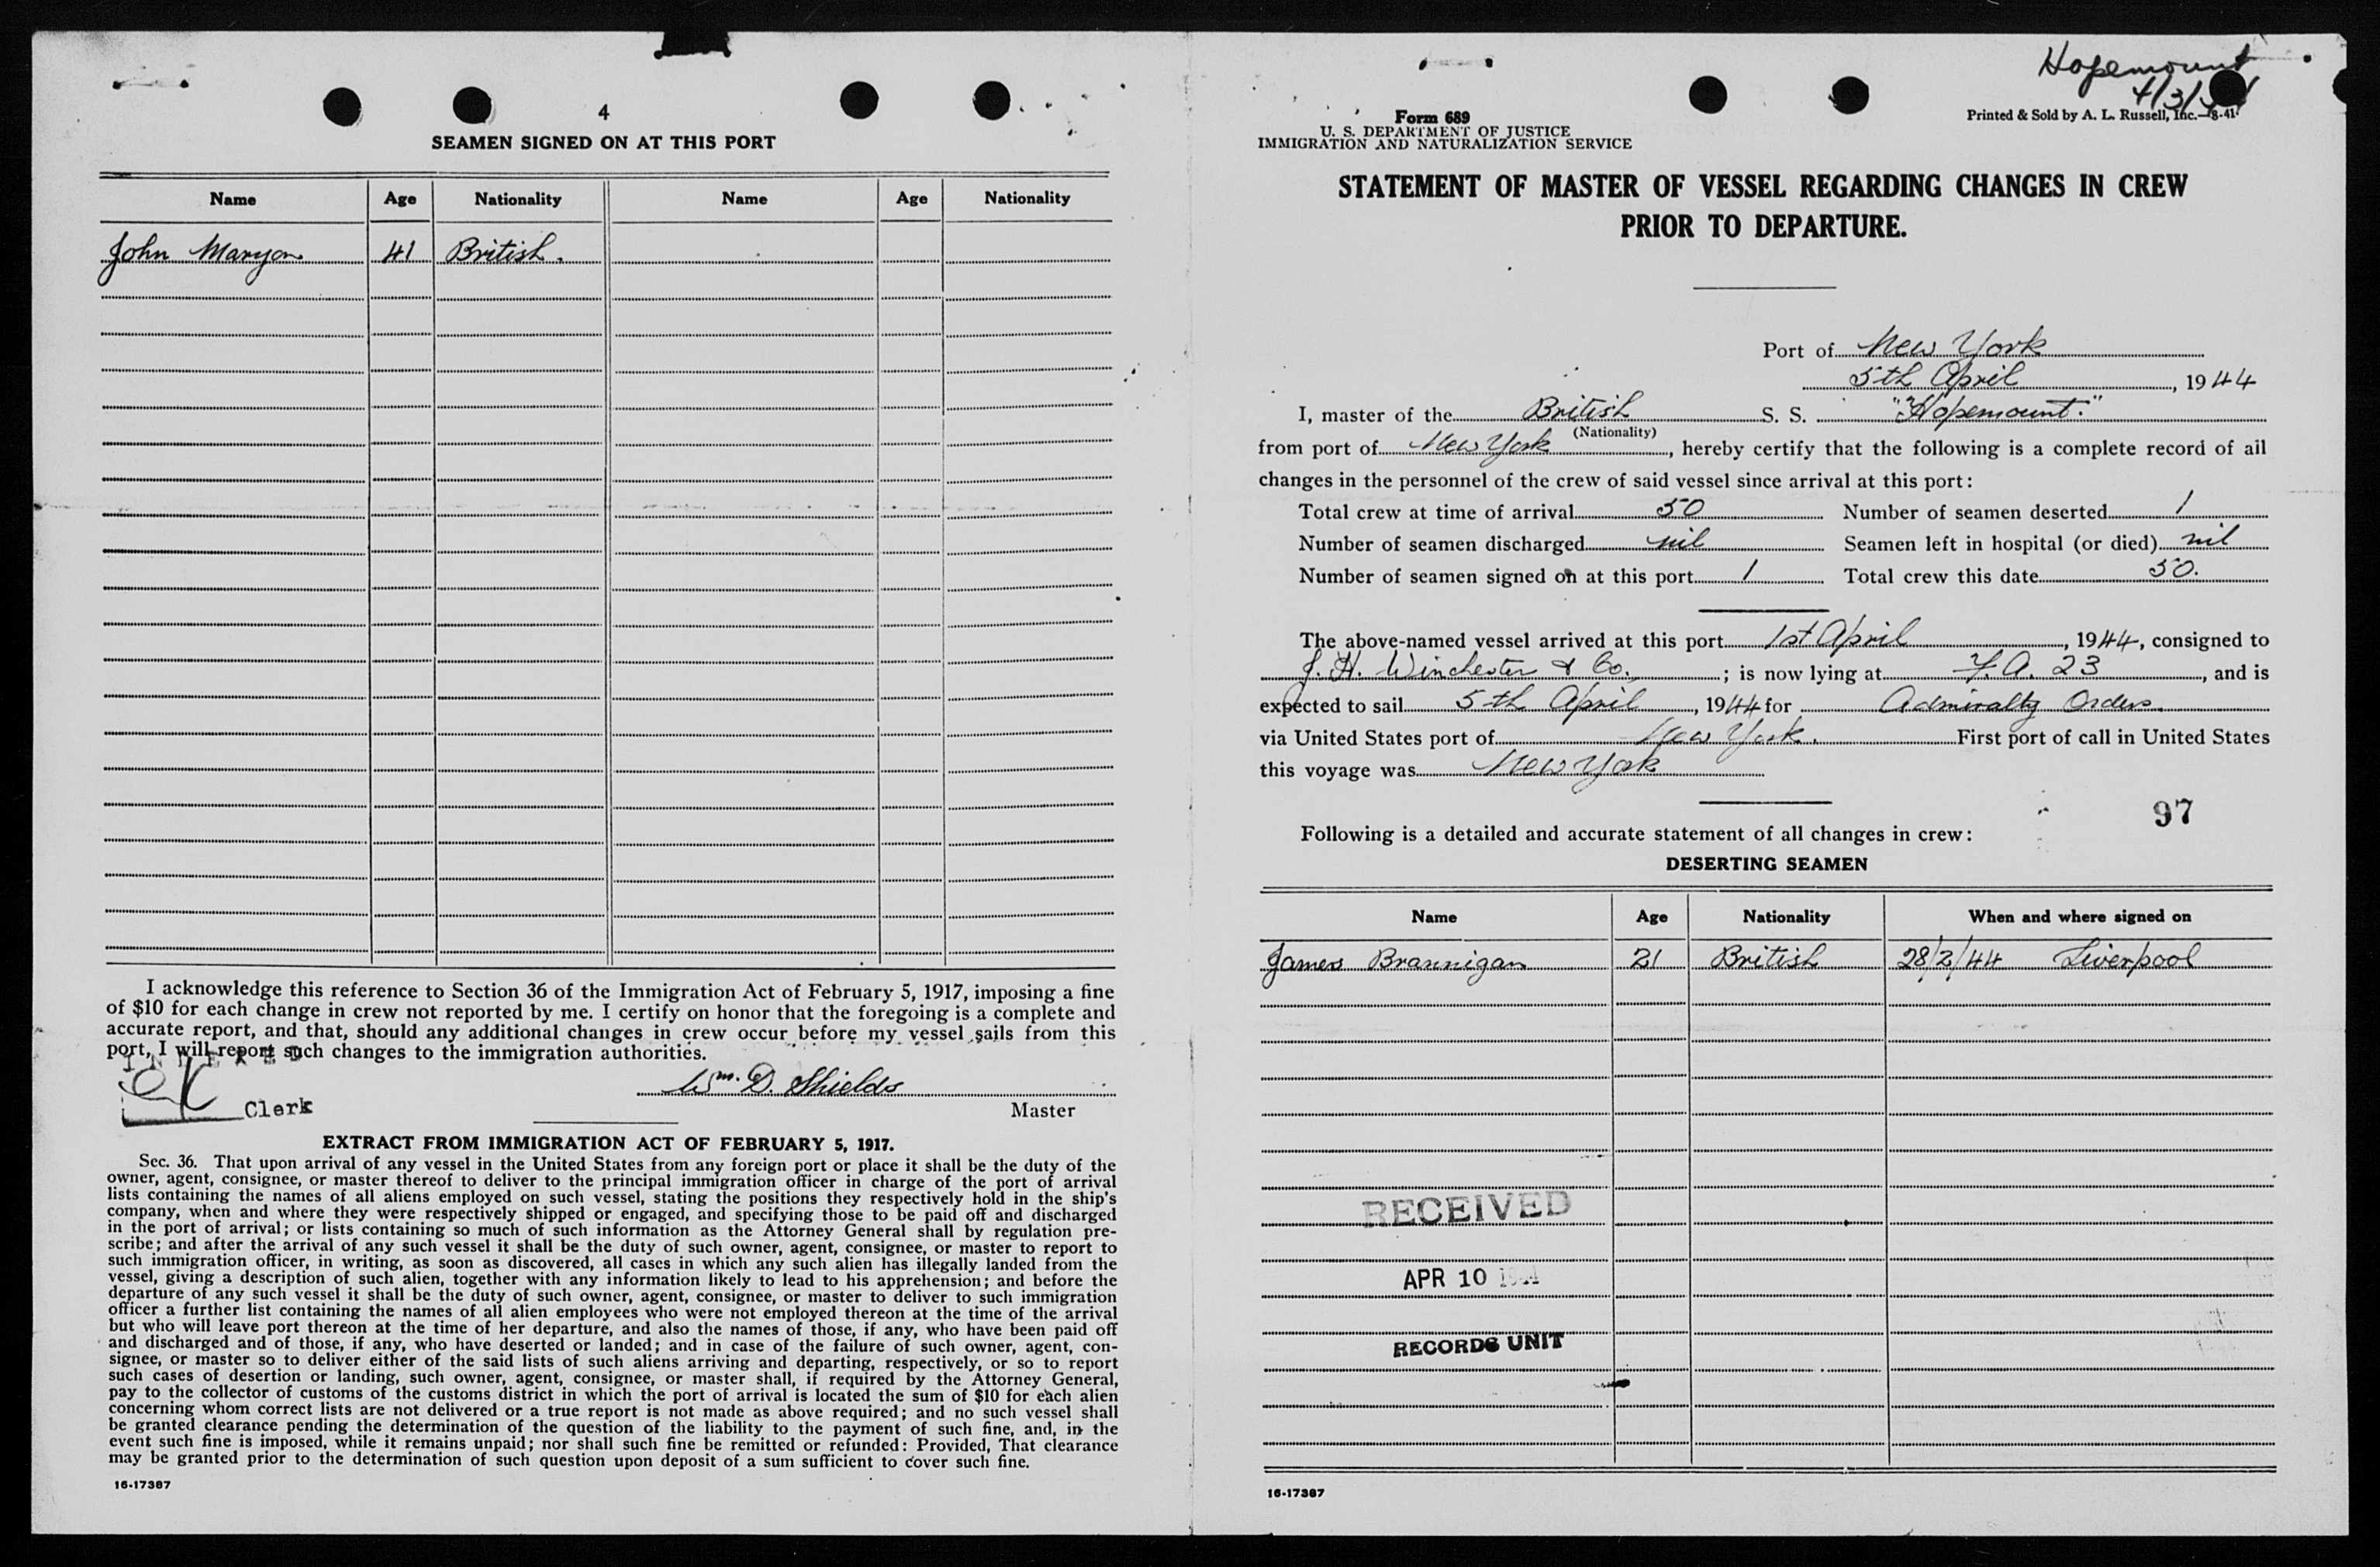 4
SEAMEN SIGNED ON AT THIS PORT
Name Age Nationality Name Age Nationality
John Maryon 41 British.
I acknowledge this reference to Section 36 of the Immigration Act of February 5, 1917, imposing a fine
of $10 for each change in crew not reported by me. I certify on honor that the foregoing is a complete and
accurate report, and that, should any additional changes in crew occur before my vessel sails from this
port, I will report such changes to the immigration authorities.
Wm. D. Shields
Clerk
Master
EXTRACT FROM IMMIGRATION ACT OF FEBRUARY 5, 1917.
Sec. 36. That upon arrival of any vessel in the United States from any foreign port or place it shall be the duty of the
owner, agent, consignee, or master thereof to deliver to the principal immigration officer in charge of the port of arrival
lists containing the names of all aliens employed on such vessel, stating the positions they respectively hold in the ship's
company, when and where they were respectively shipped or engaged, and specifying those to be paid off and discharged
in the port of arrival; or lists containing so much of such information as the Attorney General shall by regulation pre-
scribe; and after the arrival of any such vessel it shall be the duty of such owner, agent, consignee, or master to report to
such immigration officer, in writing, as soon as discovered, all cases in which any such alien has illegally landed from the
vessel, giving a description of such alien, together with any information likely to lead to his apprehension; and before the
departure of any such vessel it shall be the duty of such owner, agent, consignee, or master to deliver to such immigration
officer a further list containing the names of all alien employees who were not employed thereon at the time of the arrival
but who will leave port thereon at the time of her departure, and also the names of those, if any, who have been paid off
and discharged and of those, if any, who have deserted or landed; and in case of the failure of such owner, agent, con-
signee, or master so to deliver either of the said lists of such aliens arriving and departing, respectively, or so to report
such cases of desertion or landing, such owner, agent, consignee, or master shall, if required by the Attorney General,
pay to the collector of customs of the customs district in which the port of arrival is located the sum of $10 for each alien
concerning whom correct lists are not delivered or a true report is not made as above required; and no such vessel shall
be granted clearance pending the determination of the question of the liability to the payment of such fine, and, in the
event such fine is imposed, while it remains unpaid; nor shall such fine be remitted or refunded: Provided, That clearance
may be granted prior to the determination of such question upon deposit of a sum sufficient to cover such fine.
16-17387
Hopemount
Form 689
U. S. DEPARTMENT OF JUSTICE
IMMIGRATION AND NATURALIZATION SERVICE
Printed & Sold by A. L. Russell, Inc.—8-41
STATEMENT OF MASTER OF VESSEL REGARDING CHANGES IN CREW
PRIOR TO DEPARTURE.
Port of New York
5th April, 1944
I, master of the British S. S. "Hopemount."
(Nationality)
from port of New York, hereby certify that the following is a complete record of all
changes in the personnel of the crew of said vessel since arrival at this port:
Total crew at time of arrival 50 Number of seamen deserted 1
Number of seamen discharged nil Seamen left in hospital (or died) nil
Number of seamen signed on at this port 1 Total crew this date 50.
The above-named vessel arrived at this port 1st April, 1944, consigned to
J. H. Winchester & Co.; is now lying at Y. A. 23, and is
expected to sail 5th April, 1944 for Admiralty Orders.
via United States port of New York. First port of call in United States
this voyage was New York
97
Following is a detailed and accurate statement of all changes in crew:
DESERTING SEAMEN
Name Age Nationality When and where signed on
James Brannigan 21 British 28/2/44 Liverpool
RECEIVED
APR 10 1944
RECORDS UNIT
16-17387